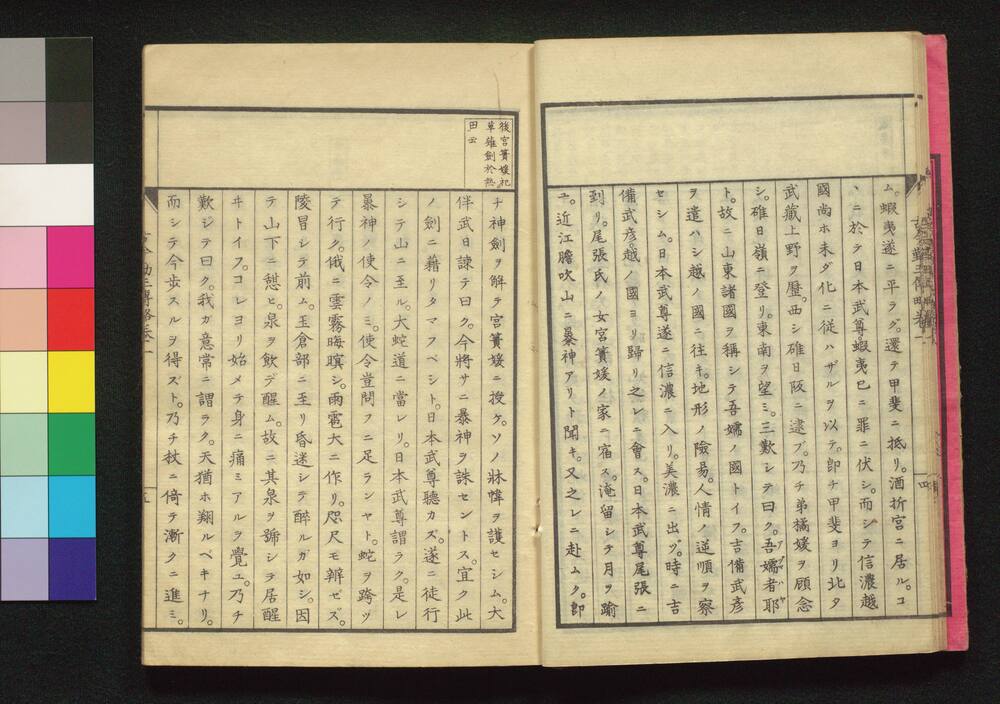 ム。蝦夷遂ニ平ラグ。還テ甲斐ニ抵リ。酒折宮ニ居ル。コ
ヽニ於テ日本武尊蝦夷已ニ罪ニ伏シ。而シテ信濃越
國尚ホ未ダ化ニ從ハザルヲ以テ。卽チ甲斐ヨリ北タ
武藏上野ヲ歷。西シ碓日阪ニ逮ブ。乃チ弟橘媛ヲ顧念
シ。碓日嶺ニ登リ。東南ヲ望ミ。三歎シテ曰ク。吾嬬者耶
ト。故ニ山東諸國ヲ稱シテ吾嬬ノ國トイフ。吉備武彦
ヲ遣ハシ越ノ國ニ往キ。地形ノ險易。人情ノ逆順ヲ察
セシム。日本武尊遂ニ信濃ニ入リ。美濃ニ出ヅ。時ニ吉
備武彦。越ノ國ヨリ歸リ之レニ會ス。日本武尊尾張ニ
到リ。尾張氏ノ女宮簀媛ノ家ニ宿ス。淹留シテ月ヲ踰
ユ。近江膽吹山ニ暴神アリト聞キ。又之レニ赴ムク。卽
四
後宮簀媛祀
草薙劍於熱
田云
チ神劍ヲ解テ宮簀媛ニ授ケ。ソノ牀幃ヲ護セシム。大
伴武日諫テ曰ク。今將サニ暴神ヲ誅セントス。宜ク此
ノ劍ニ藉リタマフベシト。日本武尊聽カズ。遂ニ徒行
シテ山ニ至ル。大蛇道ニ當レリ。日本武尊謂ラク。是レ
暴神ノ使令ノミ。使令豈問フニ足ランヤト。蛇ヲ跨ヅ
テ行ク。俄ニ雲霧晦暝シ。雨雹大ニ作リ。咫尺モ辨ゼズ。
陵冒シテ前ム。玉倉部ニ至リ昏迷シテ醉ルガ如シ。因
テ山下ニ憩ヒ。泉ヲ飲デ醒ム。故ニ其泉ヲ號シテ居醒
井トイフ。コレヨリ始メテ身ニ痛ミアルヲ覺ユ。乃チ
歎ジテ曰ク。我ガ意常ニ謂ラク。天猶ホ翔ルベキナリ。
而シテ今步スルヲ得ズト。乃チ杖ニ倚テ漸クニ進ミ。
五